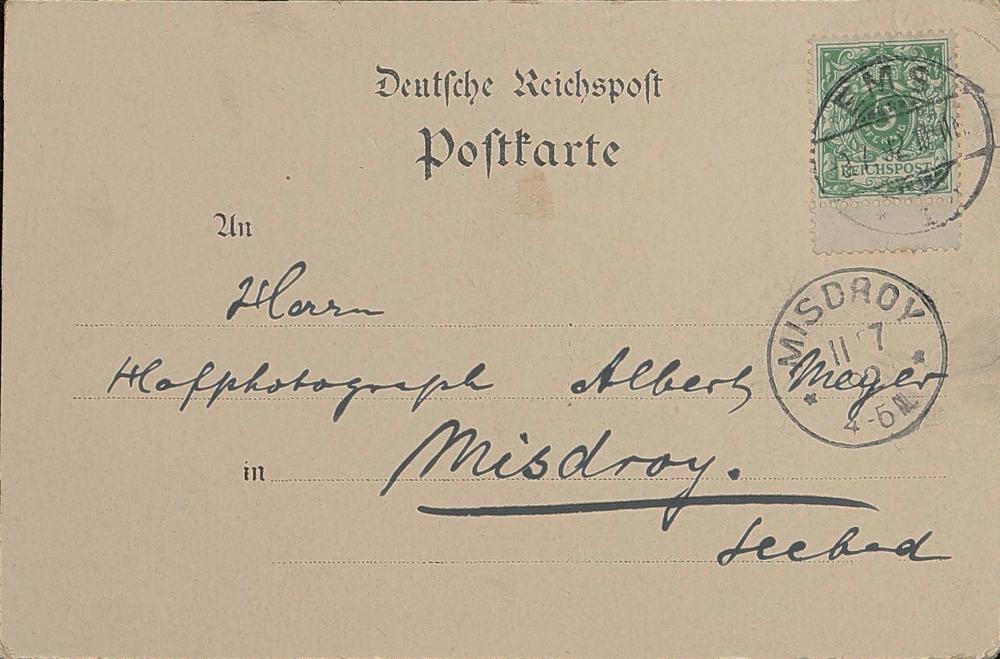 Deutsche Reichspost
Postkarte
EMS
5
PFENNIG
REICHSPOST
An
Herrn
Hofphotograph Albert Meyer
in Misdroy.
Seebad
MISDROY
11 7
4-5N